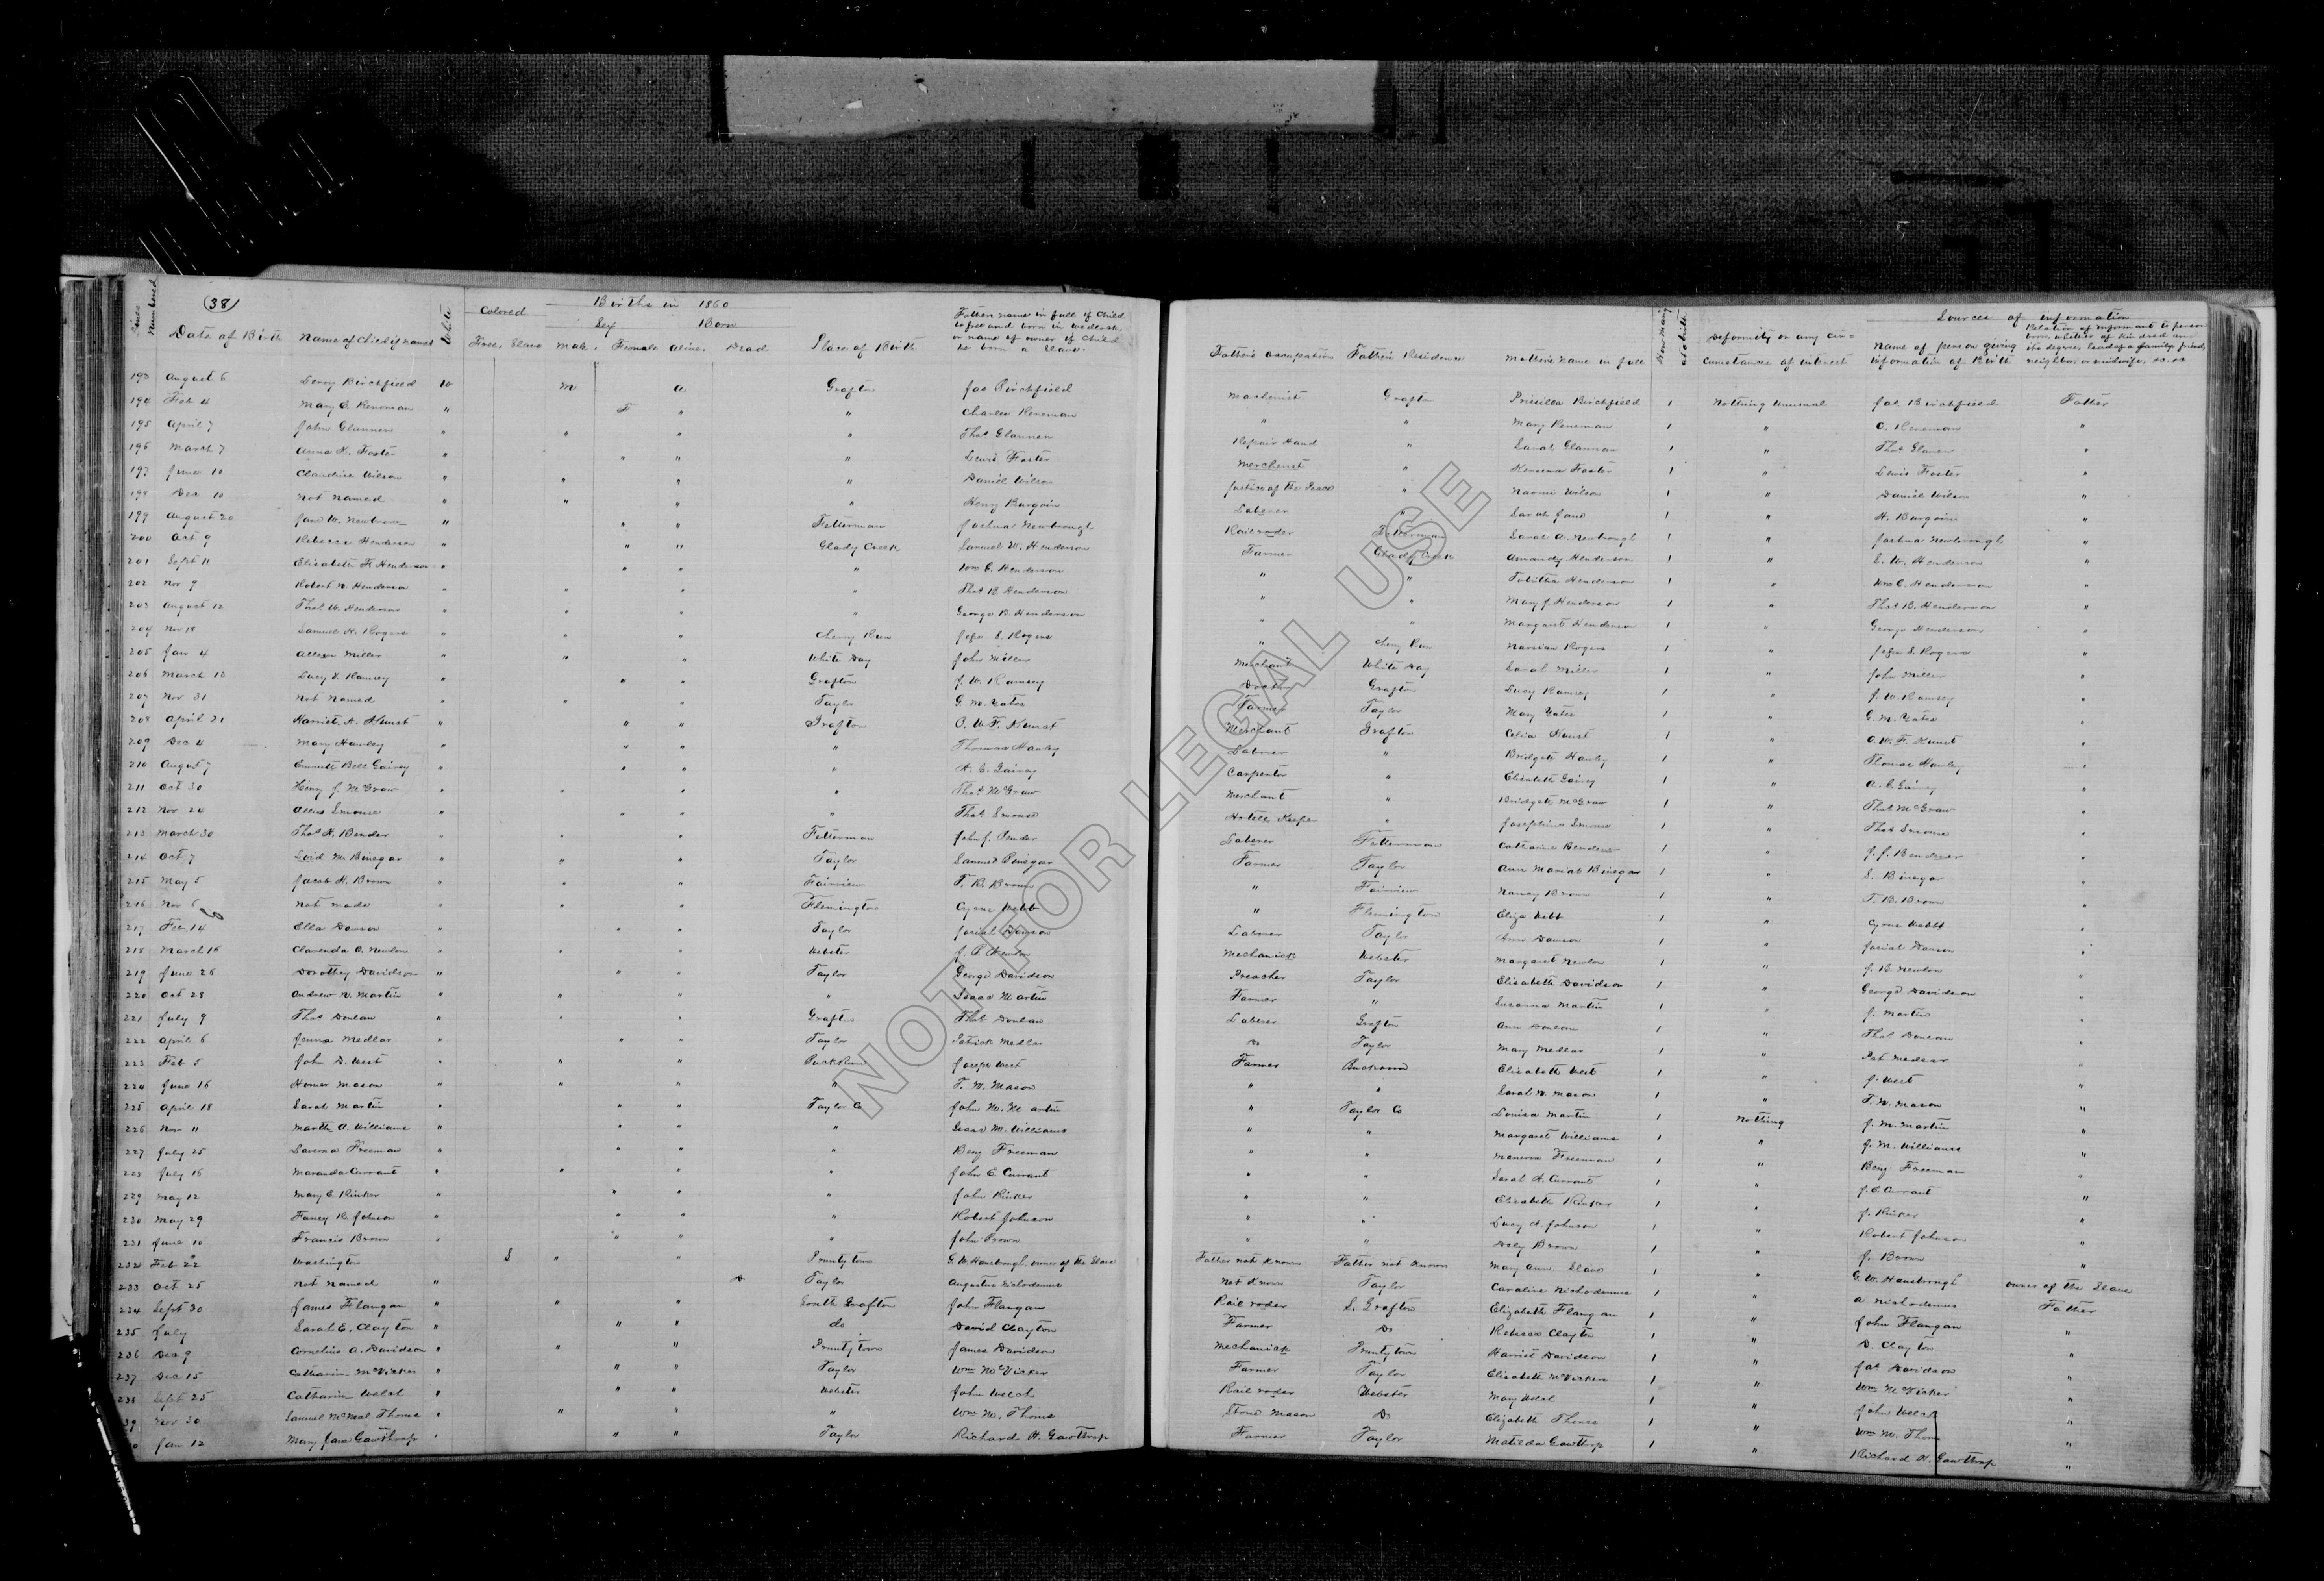 (38)
Births in 1860
Line Numbered Date of Birth Name of Child if named White Colored Free Slave Sex Male Female Born Alive Dead Place of Birth Father name in full if Child be free and born in wedlock, or name of owner if Child be born a Slave. Father's occupation Father's Residence Mother's name in full Deformity or any circumstance of interest Sources of information Name of person giving information of Birth
193 August 6 Birchfield W M A Grafton Jas Birchfield Machenist Grafton Prisilla Birchfield 1 Nothing Unusual Jas. Birchfield Father
194 Feb 4 Mary C. Reneman " F " " Charles Reneman " " Mary Reneman 1 " C. Reneman "
195 April 7 John Glannen " " " " Thos Glannen Repair Hand " Sarah Glannan 1 " Thos Glanen "
196 March 7 Anna K. Foster " " " " Lewis Foster Merchenst " Foster 1 " Lewis Foster "
197 June 10 Claudius Wilson " " " " Daniel Wilson Justice of the Peace " Naomi Wilson 1 " Daniel Wilson "
198 Dec 10 Not Named " " " " Henry Burgoin Laberer " Sarah Jane 1 " H. Burgoin "
199 August 20 Jane W. " " " Fetterman Joshua Newbrough Railroader Fetterman Sarah A. Newbrough 1 " Joshua Newbrough "
200 Oct 9 Rebecca Henderson " " " Glady Creek Samuel W. Henderson Farmer Glady Creek Amandy Henderson 1 " S. W. Henderson "
201 Sept 11 Elizabeth F. Henderson " " " " Wm C. Henderson " " Tabitha Henderson 1 " Wm C. Henderson "
202 Nov 9 Robert N. Henderson " " " " Thos B. Henderson " " Mary J. Henderson 1 " Thos B. Henderson "
203 August 12 Thos W. Henderson " " " " George B. Henderson " " Margaret Henderson 1 " George Henderson "
204 Nov 18 Samuel H. Rogers " " " Cherry Run S. Rogers " Cherry Run Rogers 1 " S. Rogers "
205 Jan 4 Miller " " " White Day John Miller Merchant White Day Sarah Miller 1 " John Miller "
206 March 13 Lucy Ramsey " " " Grafton J. W. Ramsey Doctor Grafton Lucy Ramsey 1 " J. W. Ramsey "
207 Nov 31 Not Named " " " Taylor G. M. Yates Farmer Taylor Mary Yates 1 " G. M. Yates "
208 April 21 Harriet A. Kunst " " " Grafton O. W. F. Kunst Merchant Grafton Celia Kunst 1 " O. W. F. Kunst "
209 Dec 4 Mary Hawley " " " " Thomas Hawley Laberer " Bridgete Hawley 1 " Thomas Hawley "
210 August 7 Bell Gairey " " " " A. C. Gairey Carpenter " Elizabeth Gairey 1 " A. C. Gairey "
211 Oct 30 Henry J. McGraw " " " " Thos McGraw Merchant " Bridgete McGraw 1 " Thos McGraw "
212 Nov 24 Smouse " " " " Thos Smouse Hotell Keeper " Josephine Smouse 1 " Thos Smouse "
213 March 30 Thos H. Bender " " " Fetterman John J. Bender Laberer Fetterman Catharine Bender 1 " J. J. Bender "
214 Oct 7 Loid M. Binegar " " " Taylor Samuel Binegar Farmer Taylor Ann Mariah Binegar 1 " S. Binegar "
215 May 5 Jacob H. Brown " " " Fairview T. B. Brown " Fairview Nancy Brown 1 " T. B. Brown "
216 Nov 6 Not made " " " Flemington Cyrus Webb " Flemington Eliza Webb 1 " Cyrus Webb "
217 Feb 14 Ella Dawson " " " Taylor Josiah Dawson Laberer Taylor Ann Dawson 1 " Josiah Dawson "
218 March 15 Clarenda O. Newlon " " " Webster J. B. Newlon Mechanick Webster Margaret Newlon 1 " J. B. Newlon "
219 June 26 Dorothey Davidson " " " Taylor George Davidson Preacher Taylor Elizabeth Davidson 1 " George Davidson "
220 Oct 28 Andrew N. Martin " " " " Isaac Martin Farmer " Susanna Martin 1 " J. Martin "
221 July 9 Thos Donlan " " " Grafton Thos Donlan Laberer Grafton Ann Donlan 1 " Thos Donlan "
222 April 6 Medlar " " " Taylor Patrick Medlar Do Taylor Mary Medlar 1 " Pat Medlar "
223 Feb 5 John D. West " " " Buck Run Joseph West Farmer Buckrun Elizabeth West 1 " J. West "
224 June 16 Homer Mason " " " " T. W. Mason " " Sarah N. Mason 1 " T. W. Mason "
225 April 18 Sarah Martin " " " Taylor Co John M. Martin " Taylor Co Louisa Martin 1 Nothing J. M. Martin "
226 Nov 11 Martha A. Williams " " " " Isaac M. Williams " " Margaret Williams 1 " J. M. Williams "
227 July 25 Laverna Freeman " " " " Benj Freeman " " Manerva Freeman 1 " Benj Freeman "
228 July 16 Maranda Currant " " " " John C. Currant " " Sarah A. Currant 1 " J. C. Currant "
229 May 12 Mary C. Rinker " " " " John Rinker " " Elizabeth Rinker 1 " J. Rinker "
230 May 29 Fancy R. Johnson " " " " Robert Johnson " " Lucy A. Johnson 1 " Robert Johnson "
231 June 10 Francis Brown " " " " John Brown " " Brown 1 " J. Brown "
232 Feb 22 Washington S " " Pruntytown G. W. Hansbrough, owner of the Slave Father not Known Father not Known Mary Ann. Slave 1 " G. W. Hansbrough owner of the Slave
233 Oct 25 Not Named " D Taylor Augustus Nichodemus Not Known Taylor Caroline Nichodemus 1 " A Nichodemus Father
234 Sept 30 James Flangan " " " South Grafton John Flangan Rail roder S. Grafton Elizabeth Flangan 1 " John Flangan "
235 July Sarah E. Clayton " " " do David Clayton Farmer Do Rebecca Clayton 1 " D. Clayton "
236 Dec 9 Cornelius A. Davidson " " " Pruntytown James Davidson Mechanick Pruntytown Harriet Davidson 1 " Jas Davidson "
237 Dec 15 Catharine McVicker " " " Taylor Wm McVicker Farmer Taylor Elizabeth McVicker 1 " Wm McVicker "
238 Sept 25 Catharine Welsh " " " Webster John Welch Rail roder Webster Mary Welsh 1 " John Welch "
39 Nov 30 Samuel McNeal Thoms " " " " Wm M. Thoms Stone Mason Do Elizabeth Thoms 1 " Wm M. Thoms "
Jan 12 Mary Jane Gawthrop " " " Taylor Richard H. Gawthrop Farmer Taylor Matilda Gawthrop 1 " Richard H. Gawthrop "
NOT FOR LEGAL USE